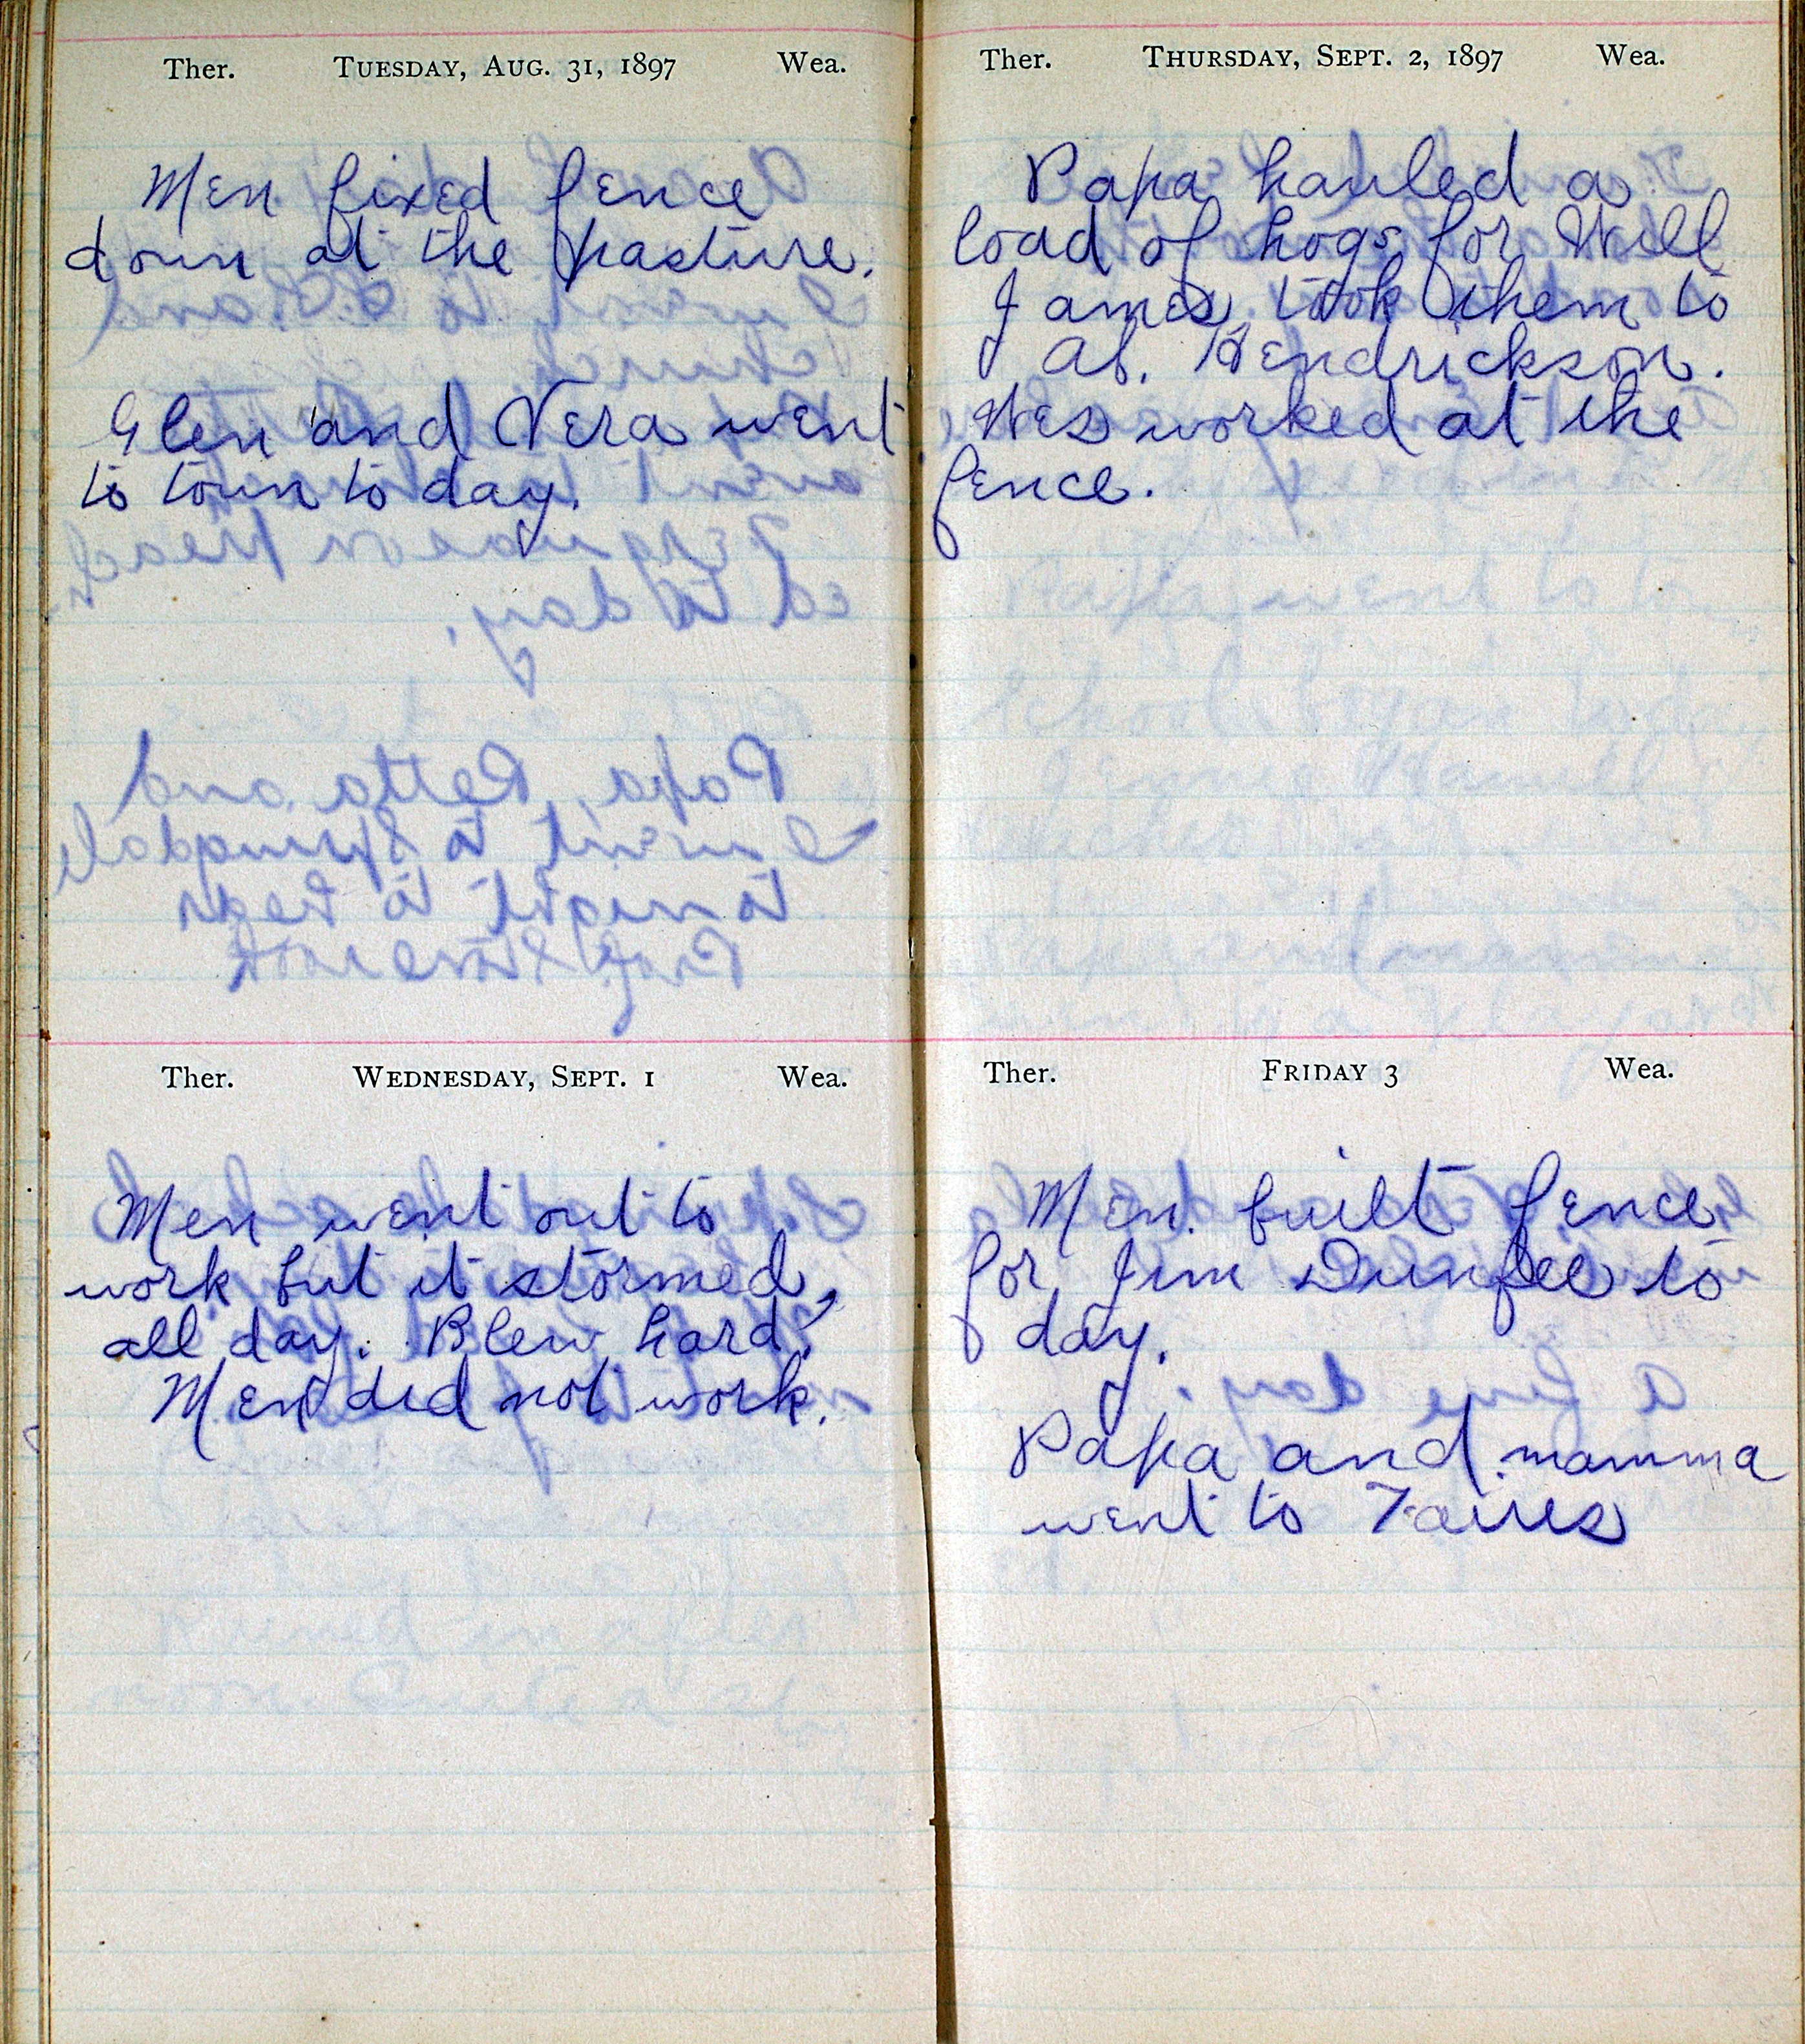 Ther. Tuesday, Aug. 31, 1897 Wea.
Men fixed fence
down at the pasture.
Glen and Vera went
to town to day.
Ther. Wednesday, Sept. 1 Wea.
Men went out to
work but it stormed
all day. Blew hard.
Men did not work.
Ther. Thursday, Sept. 2, 1897 Wea.
Papa hauled a
load of hogs for Will
James took them to
Ab. Hendrickson.
Wes worked at the
fence.
Ther. Friday 3 Wea.
Men built fence
for Jim Dunfee to
day.
Papa and mamma
went to